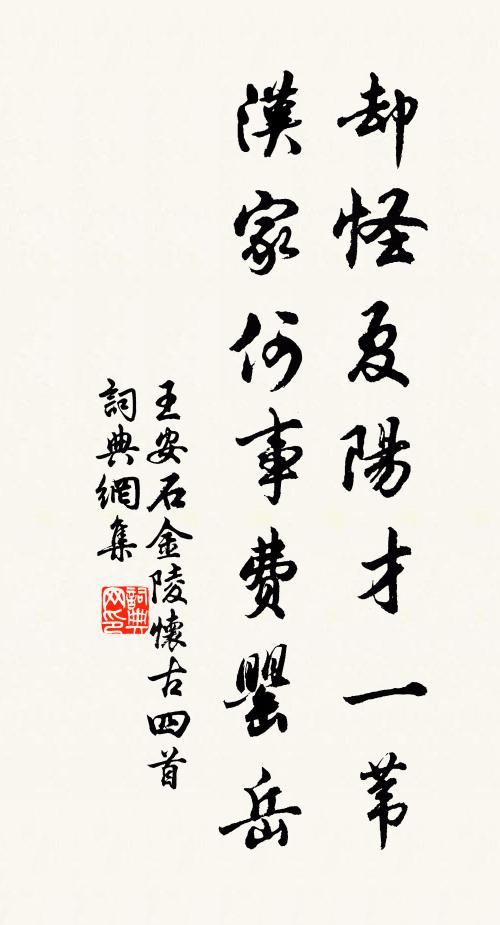 却怪夏陽才一葦
漢家何事費罌岳
王安石金陵懷古四首
詞典網集
詞典网印